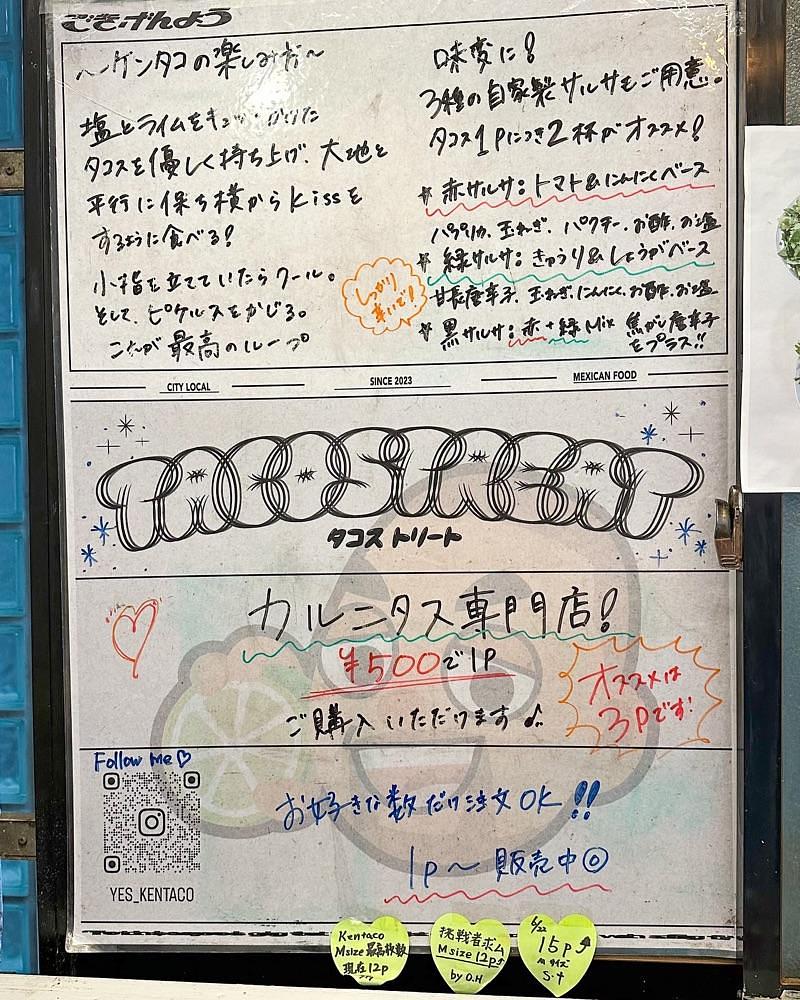 ごきげんよう
〜ケンタコの楽しみ方〜
塩とライムをキュッとかけた
タコスを優しく持ち上げ、大地と
平行に保ち横からkissを
するように食べる!
小指を立てていたらクール。
そして、ピクルスをかじる。
これが最高のループ
しっかり
辛いぞ!
味変に!
3種の自家製サルサもご用意。
タコス1Pにつき2杯がオススメ!
赤サルサ:トマト&にんにくベース
パプリカ、玉ねぎ、パクチー、お酢、お塩
緑サルサ:きゅうり&しょうがベース
甘長唐辛子、玉ねぎ、にんにく、お酢、お塩
黒サルサ:赤+緑Mix 焦がし唐辛子
をプラス!!
CITY LOCAL
SINCE 2023
MEXICAN FOOD
TACOSTREAT
タコストリート
カルニタス専門店!
¥500で1P
ご購入いただけます♪
オススメは
3Pです!
Follow me♡
YES_KENTACO
お好きな数だけ注文OK!!
1p〜販売中◎
Kentaco
Msize最高枚数
現在12p
挑戦者求ム
Msize 12p↑
by O.H
6/22
15p
Mサイズ
S.t